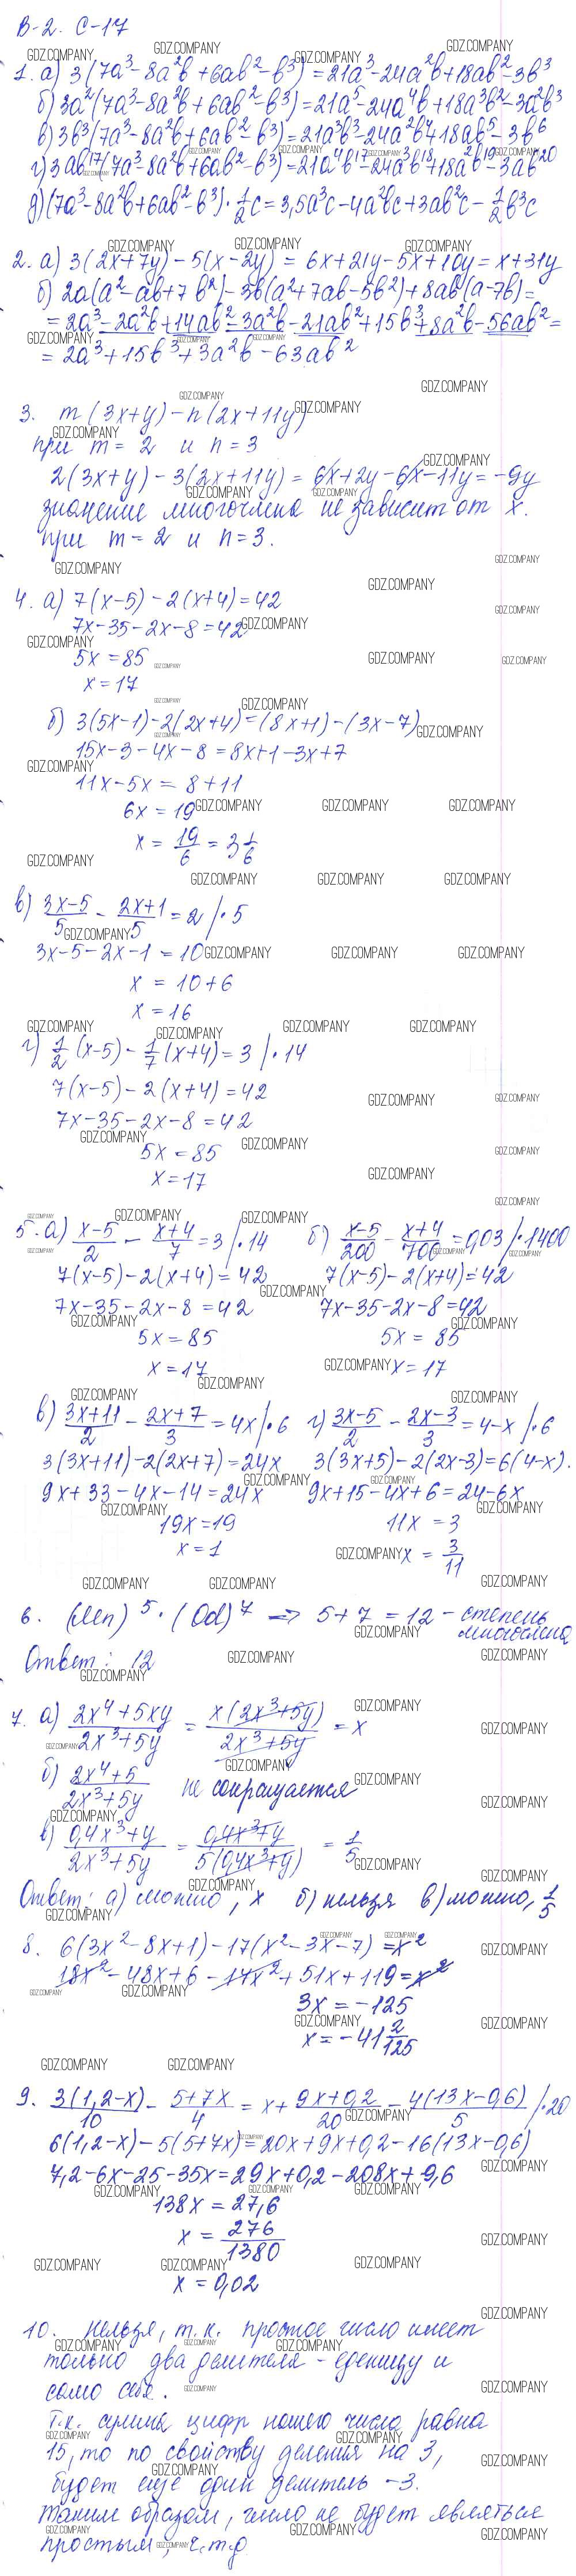 В-2. С-17
1. а) 3(7a³-8a²b+6ab²-b³)=21a³-24a²b+18ab²-3b³
б) 3a²(7a³-8a²b+6ab²-b³)=21a⁵-24a⁴b+18a³b²-3a²b³
в) 3b³(7a³-8a²b+6ab²-b³)=21a³b³-24a²b⁴+18ab⁵-3b⁶
г) 3ab¹⁷(7a³-8a²b+6ab²-b³)=21a⁴b¹⁷-24a³b¹⁸+18a²b¹⁹-3ab²⁰
д) (7a³-8a²b+6ab²-b³)·1/2c=3,5a³c-4a²bc+3ab²c-1/2b³c
2. а) 3(2x+7y)-5(x-2y)=6x+21y-5x+10y=x+31y
б) 2a(a²-ab+7b²)-3b(a²+7ab-5b²)+8ab(a-7b)=
=2a³-2a²b+14ab²-3a²b-21ab²+15b³+8a²b-56ab²=
=2a³+15b³+3a²b-63ab²
3. m(3x+y)-n(2x+11y)
при m=2 и n=3
2(3x+y)-3(2x+11y)=6x+2y-6x-11y=-9y
значение многочлена не зависит от x.
при m=2 и n=3.
4. а) 7(x-5)-2(x+4)=42
7x-35-2x-8=42
5x=85
x=17
б) 3(5x-1)-2(2x+4)=(8x+1)-(3x-7)
15x-3-4x-8=8x+1-3x+7
11x-5x=8+11
6x=19
x=19/6=3 1/6
в) (3x-5)/5-(2x+1)/5=2 /·5
3x-5-2x-1=10
x=10+6
x=16
г) 1/2(x-5)-1/7(x+4)=3 /·14
7(x-5)-2(x+4)=42
7x-35-2x-8=42
5x=85
x=17
5. а) (x-5)/2-(x+4)/7=3 /·14
7(x-5)-2(x+4)=42
7x-35-2x-8=42
5x=85
x=17
б) (x-5)/200-(x+4)/700=0,03 /·1400
7(x-5)-2(x+4)=42
7x-35-2x-8=42
5x=85
x=17
в) (3x+11)/2-(2x+7)/3=4x /·6
3(3x+11)-2(2x+7)=24x
9x+33-4x-14=24x
19x=19
x=1
г) (3x-5)/2-(2x-3)/3=4-x /·6
3(3x+5)-2(2x-3)=6(4-x).
9x+15-4x+6=24-6x
11x=3
x=3/11
6. (Mn)⁵·(Od)⁷ => 5+7=12 - степень
многочлена
Ответ: 12
7. а) (2x⁴+5xy)/(2x³+5y)=x(2x³+5y)/(2x³+5y)=x
б) (2x⁴+5)/(2x³+5y) не сокращается
в) (0,4x³+y)/(2x³+5y)=(0,4x³+y)/(5(0,4x³+y))=1/5
Ответ: а) можно, x б) нельзя в) можно, 1/5
8. 6(3x²-8x+1)-17(x²-3x-7)=x²
18x²-48x+6-17x²+51x+119=x²
3x=-125
x=-41 2/125
9. 3(1,2-x)/10-(5+7x)/4=x+(9x+0,2)/20-4(13x-0,6)/5 /·20
6(1,2-x)-5(5+7x)=20x+9x+0,2-16(13x-0,6)
7,2-6x-25-35x=29x+0,2-208x+9,6
138x=27,6
x=276/1380
x=0,02
10. Нельзя, т.к. простое число имеет
только два делителя - еденицу и
само себя.
Т.к. сумма цифр нашего числа равна
15, то по свойству деления на 3,
будет ещё один делитель -3.
Таким образом, число не будет являться
простым, ч.т.д
GDZ.COMPANY